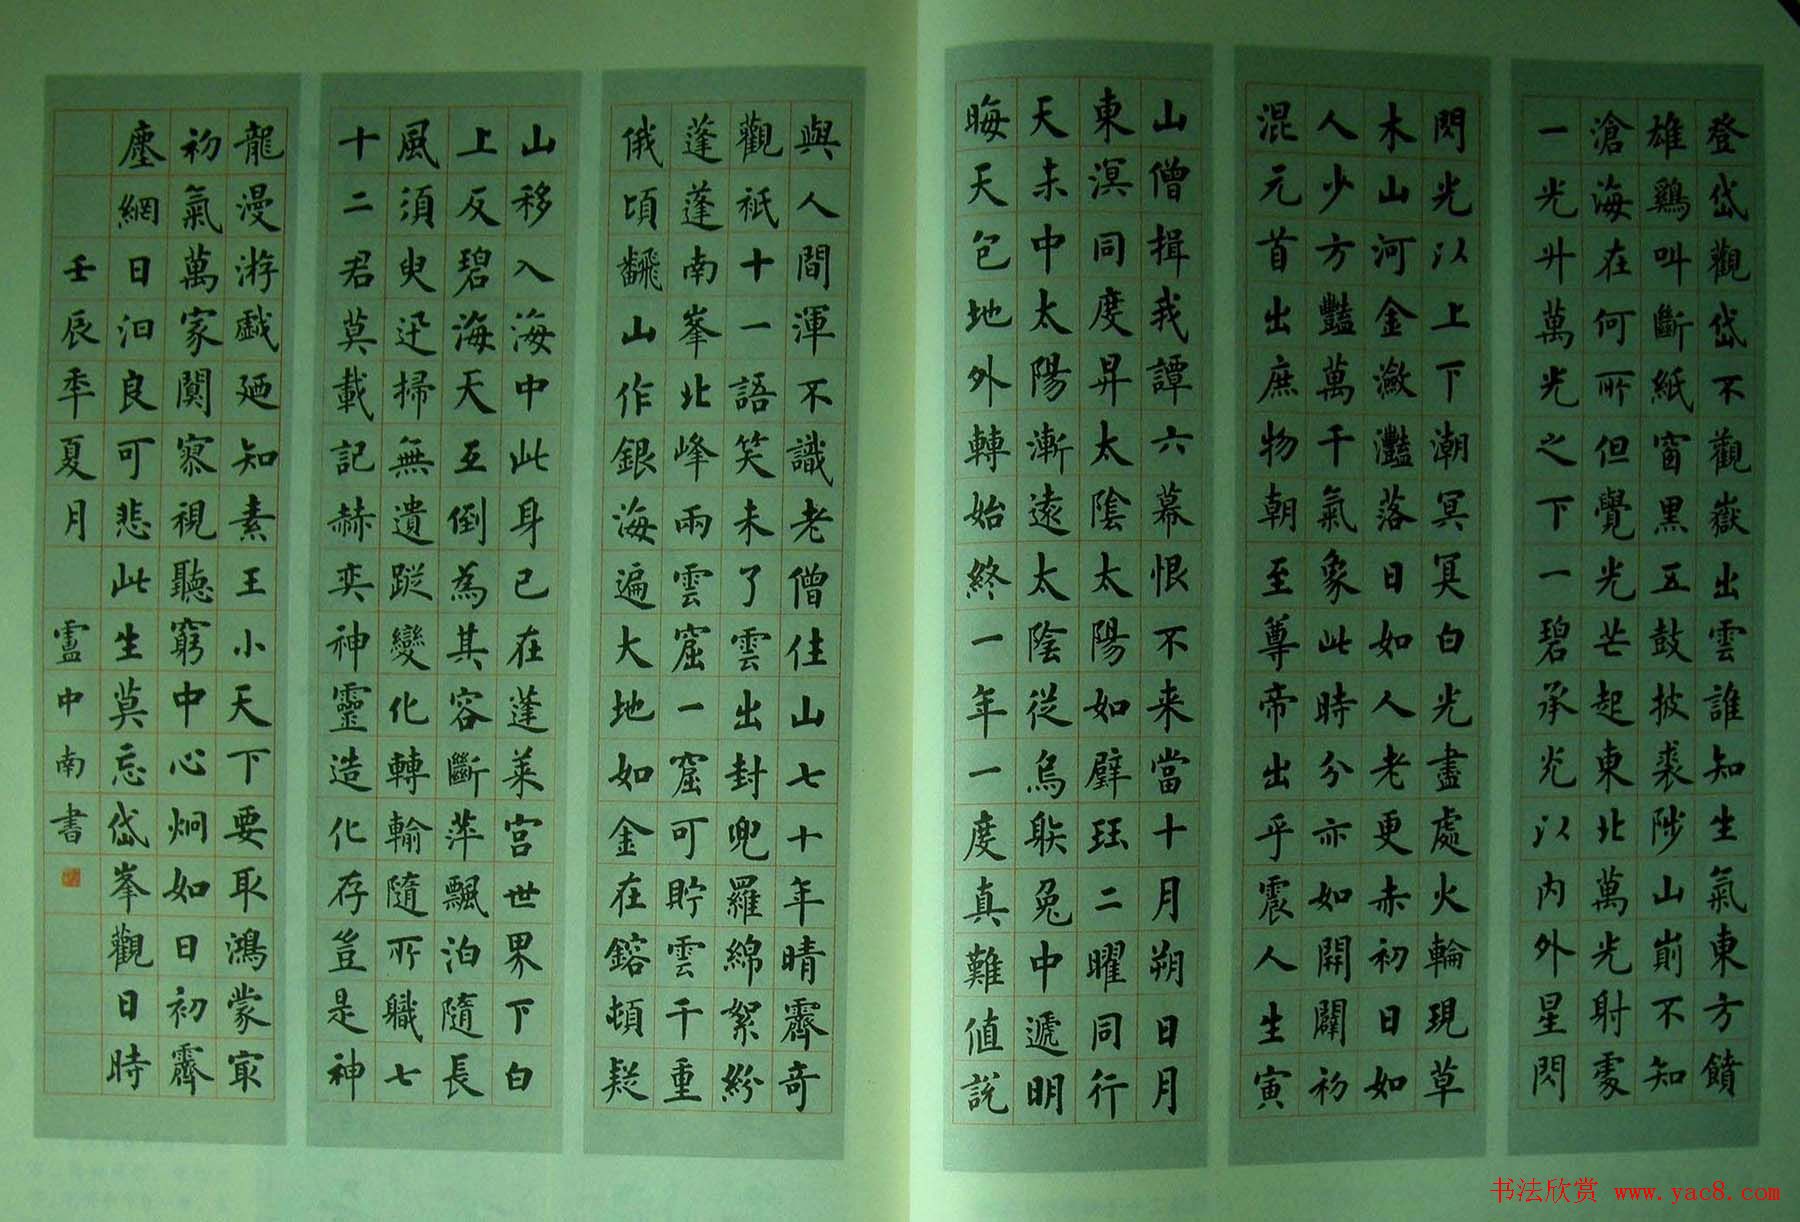 登岱觀岱不觀嶽出雲誰知生氣東方饋
雄鷄叫斷紙窗黑五鼓披裘陟山崱不知
滄海在何所但覺光芒起東北萬光射處
一光升萬光之下一碧承光以內外星閃
閃光以上下潮冥冥白光盡處火輪現草
木山河金瀲灩落日如人老更赤初日如
人少方豔萬千氣象此時分亦如開闢初
混元首出庶物朝至尊帝出乎震人生寅
山僧揖我譚六幕恨不来當十月朔日月
東溟同度昇太陰太陽如璧珏二曜同行
天未中太陽漸遠太陰從烏兔中遞明
晦天包地外轉始終一年一度真難值說
與人間渾不識老僧住山七十年晴霽奇
觀衹十一語笑未了雲出封兜羅綿絮紛
蓬蓬南峯北峰兩雲窟一窟可貯雲千重
俄頃飜山作銀海遍大地如金在鎔頓疑
山移入海中此身已在蓬萊宮世界下白
上反碧海天互倒為其容斷萍飄泊隨長
風須臾迅掃無遺蹤變化轉輸隨所職七
十二君莫載記赫奕神靈造化存豈是神
龍漫游戲廼知素王小天下要取鴻蒙冣
初氣萬家闃寂視聽窮中心炯如日初霽
塵網日汩良可悲此生莫忘岱峯觀日時
壬辰季夏月 盧中南書
书法欣赏 www.yac8.com